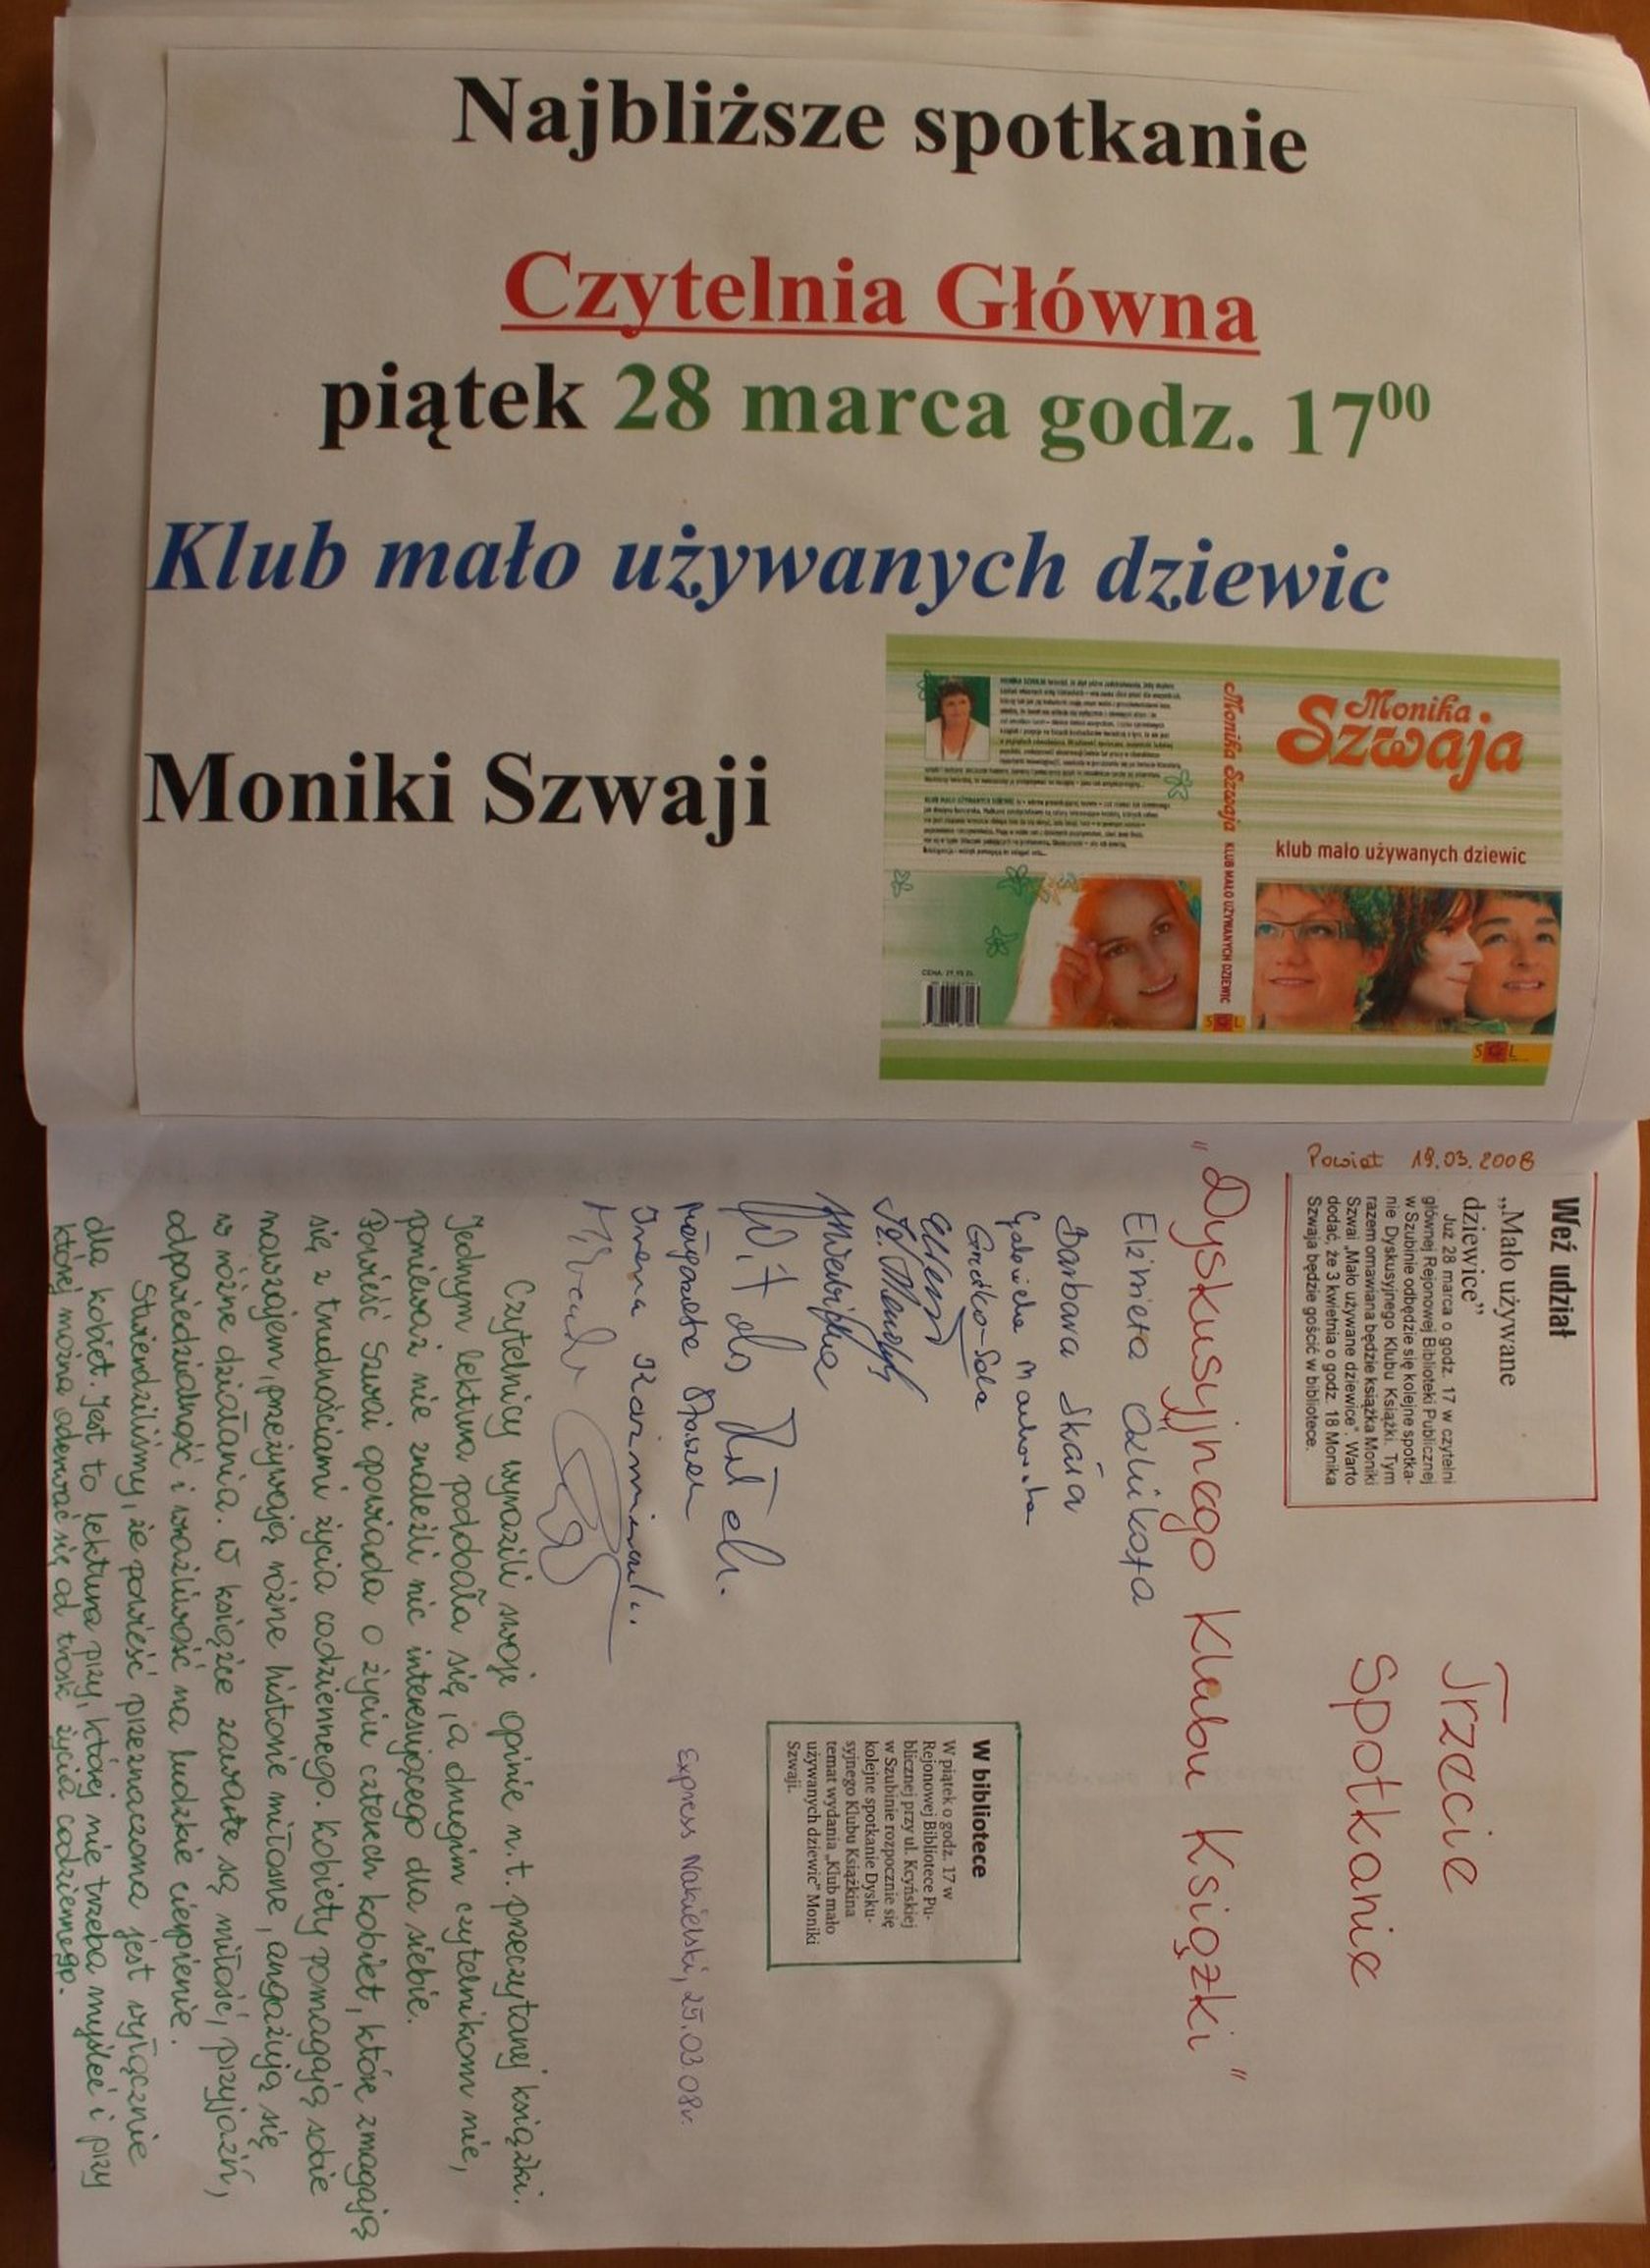 Najbliższe spotkanie
Czytelnia Główna
piątek 28 marca godz. 17⁰⁰
Klub mało używanych dziewic
Moniki Szwaji
Monika Szwaja KLUB MAŁO UŻYWANYCH DZIEWIC
SOL
Monika
Szwaja
klub mało używanych dziewic
SOL
Powiat 19.03.2008
Weź udział
„Mało używane
dziewice”
Już 28 marca o godz. 17 w czytelni
głównej Rejonowej Biblioteki Publicznej
w Szubinie odbędzie się kolejne spotka-
nie Dyskusyjnego Klubu Książki. Tym
razem omawiana będzie książka Moniki
Szwai „Mało używane dziewice”. Warto
dodać, że 3 kwietnia o godz. 18 Monika
Szwaja będzie gościć w bibliotece.
Trzecie
Spotkanie
„Dyskusyjnego Klubu Książki”
Elżbieta
Barbara Skára
Gabriela
Irena
W bibliotece
W piątek o godz. 17 w
Rejonowej Bibliotece Pu-
blicznej przy ul. Kcyńskiej
w Szubinie rozpocznie się
kolejne spotkanie Dysku-
syjnego Klubu Książkina
temat wydania „Klub mało
używanych dziewic” Moniki
Szwaji.
Express Nakielski, 25.03.08r.
Czytelnicy wyrazili swoje opinie n.t. przeczytanej książki.
Jednym lektura podobała się, a drugim czytelnikom nie,
ponieważ nie znaleźli nic interesującego dla siebie.
Powieść Szwai opowiada o życiu czterech kobiet, które zmagają
się z trudnościami życia codziennego. Kobiety pomagają sobie
nawzajem, przeżywają różne historie miłosne, angażują się
w różne działania. W książce zawarte są miłość, przyjaźń,
odpowiedzialność i wrażliwość na ludzkie cierpienie.
Stwierdziliśmy, że powieść przeznaczona jest wyłącznie
dla kobiet. Jest to lektura przy, której nie trzeba myśleć i przy
której można oderwać się od trosk życia codziennego.